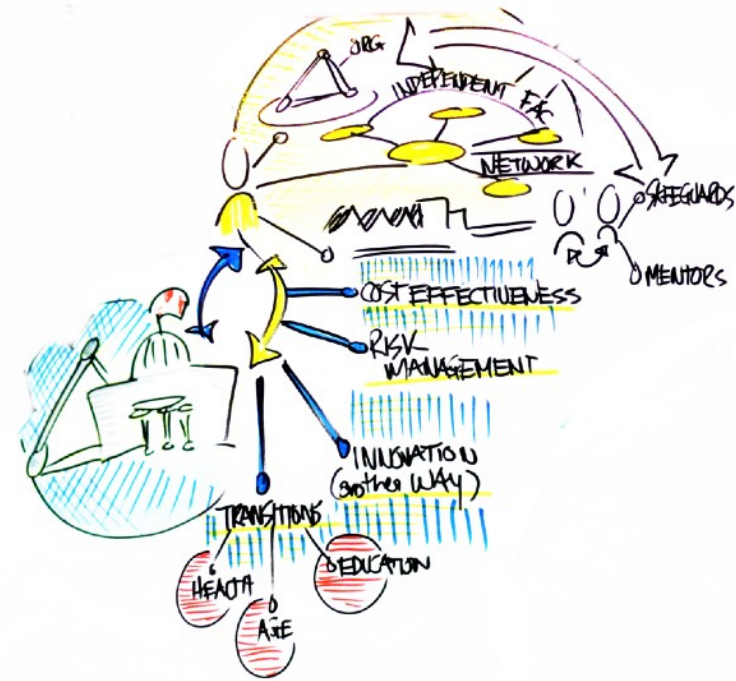 ORG
INDEPENDENT FAC
NETWORK
SAFEGUARDS
MENTORS
COST EFFECTIVENESS
RISK
MANAGEMENT
INNOVATION
(another WAY)
TRANSITIONS
HEALTH
EDUCATION
AGE